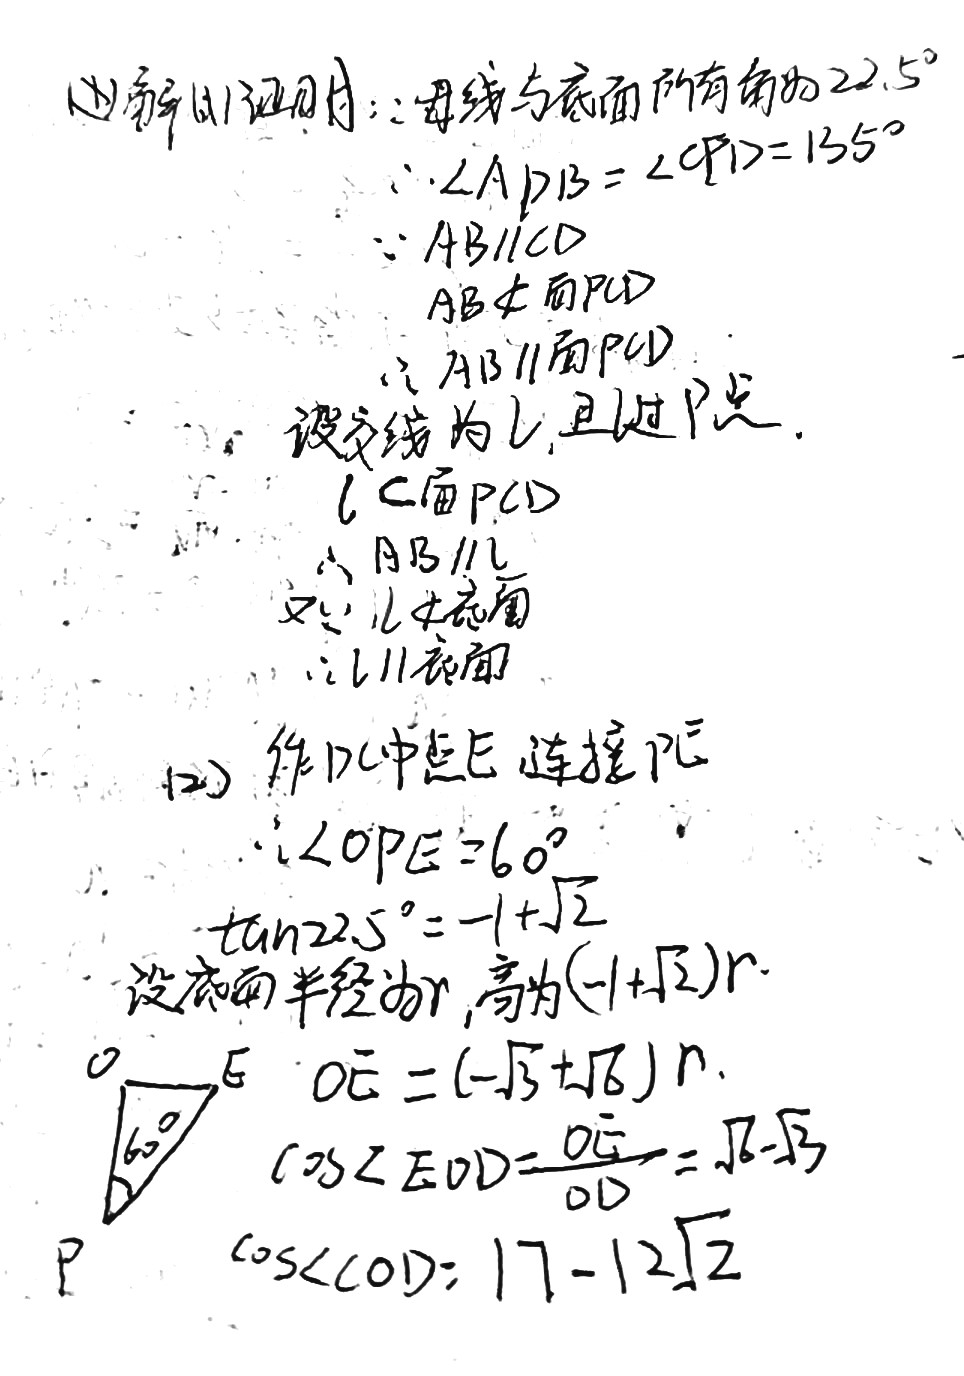 (1)解(1)证明:∵母线与底面所有角为22.5°
∴∠APB=∠CPD=135°
∵AB//CD
AB⊄面PCD
∴AB//面PCD
设交线为l,且l过P点.
l⊂面PCD
∴AB//l
又∵l⊄底面
∴l//底面
(2)作DC中点E 连接PE
∴∠OPE=60°
tan22.5°=-1+√2
设底面半径为r,高为(-1+√2)r.
O E OE=(-√3+√6)r.
60°
cos∠EOD=OE/OD=√6-√3
P cos∠COD=17-12√2